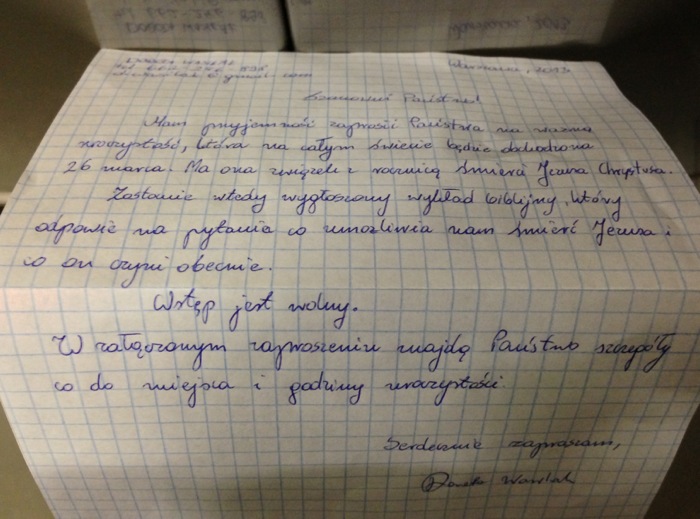 Warszawa, 2013
Szanowni Państwo!
Mam przyjemność zaprosić Państwa na ważną
uroczystość, która na całym świecie będzie obchodzona
26 marca. Ma ona związek z rocznicą śmierci Jezusa Chrystusa.
Zostanie wtedy wygłoszony wykład biblijny, który
odpowie na pytania co umożliwia nam śmierć Jezusa i
co on czyni obecnie.
Wstęp jest wolny.
W załączonym zaproszeniu znajdą Państwo szczegóły
co do miejsca i godziny uroczystości.
Serdecznie zapraszam,